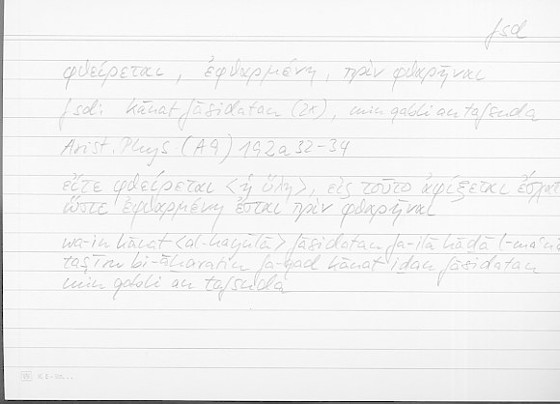 fsd
φθείρεται, ἐφθαρμένη, πρὶν φθαρῆναι
fsd: kānat fāsidatan (2x), min qabli an tafsuda
Arist. Phys (A9) 192a32-34
εἴτε φθείρεται <ἡ ὕλη>, εἰς τοῦτο ἀφίξεται ἔσχατ
ὥστε ἐφθαρμένη ἔσται πρὶν φθαρῆναι
wa-in kānat <al-hayūlā> fāsidatan fa-ilā hāḏā l-maʿnā
taṣīru bi-āḫaratin fa-qad kānat iḏan fāsidatan
min qabli an tafsuda